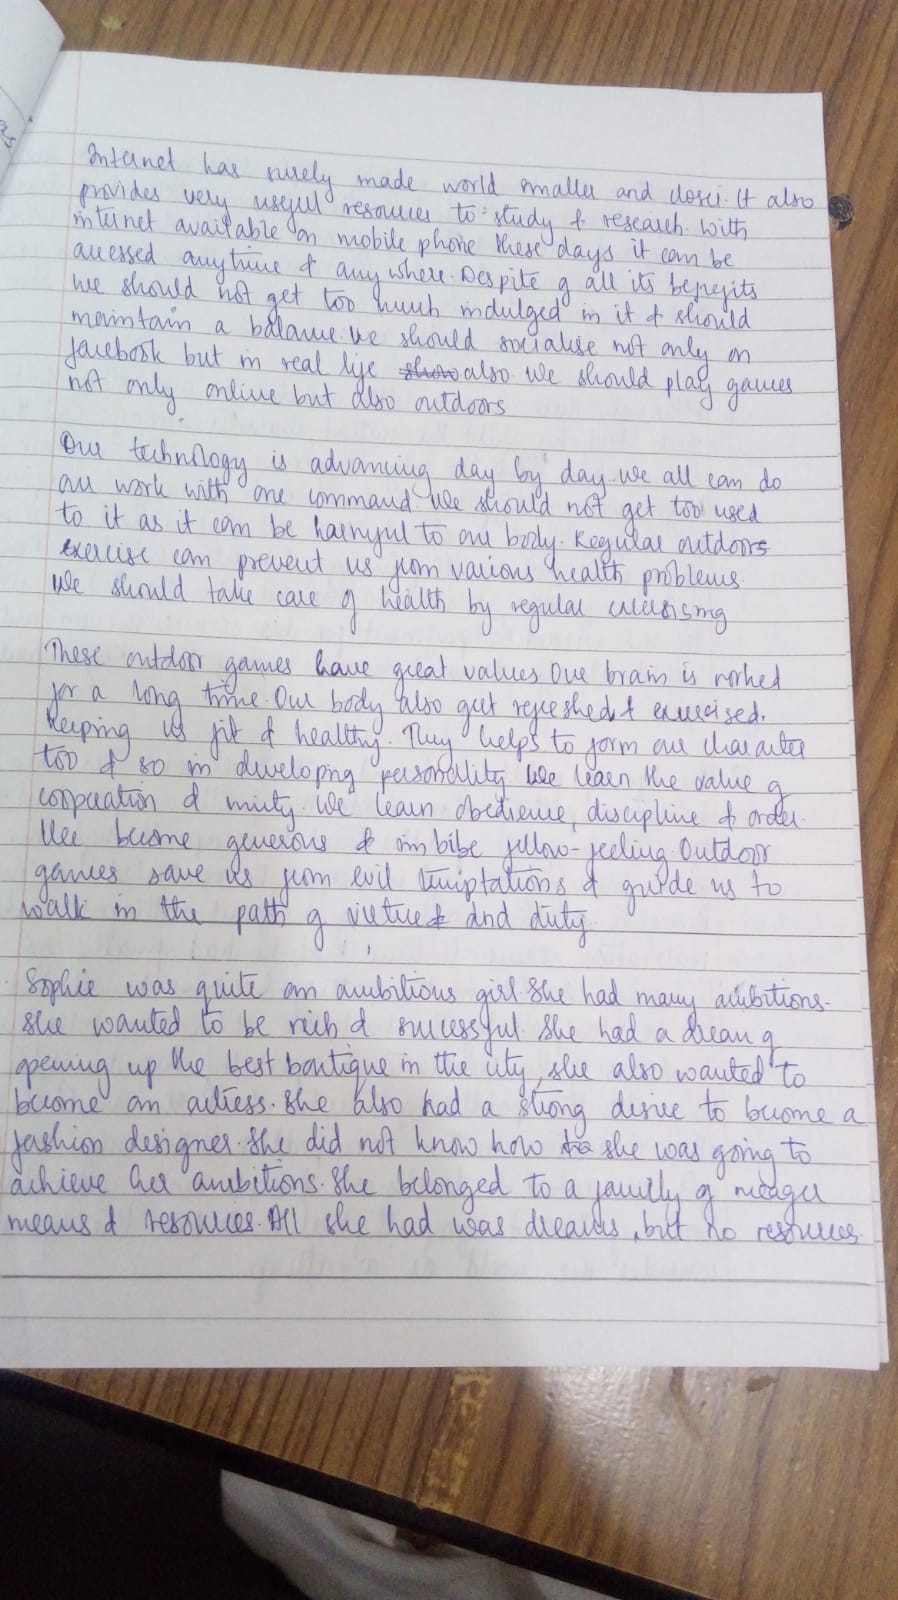 Internet has surely made world smaller and closer. It also
provides very useful resources to study & research. With
internet available on mobile phone these days it can be
accessed anytime & anywhere. Despite of all its benefits
we should not get too much indulged in it & should
maintain a balance. we should socialise not only on
facebook but in real life also. We should play games
not only online but also outdoors
Our technology is advancing day by day. we all can do
our work with one command. We should not get too used
to it as it can be harmful to our body. Regular outdoors
exercise can prevent us from various health problems.
We should take care of health by regular exercising
These outdoor games have great values Our brain is worked
for a long time. Our body also get refreshed & exercised.
Keeping us fit & healthy. They helps to form our character
too & so in developing personality We learn the value of
cooperation & unity. We learn obedience, discipline & order.
We become generous & imbibe fellow-feeling Outdoor
games save us from evil temptations & guide us to
walk in the path of virtue and duty.
Sophie was quite an ambitious girl. She had many ambitions.
She wanted to be rich & successful. She had a dream of
opening up the best boutique in the city, she also wanted to
become an actress. She also had a strong desire to become a
fashion designer. She did not know how she was going to
achieve her ambitions. She belonged to a family of meager
means & resources. All she had was dreams, but no resources.